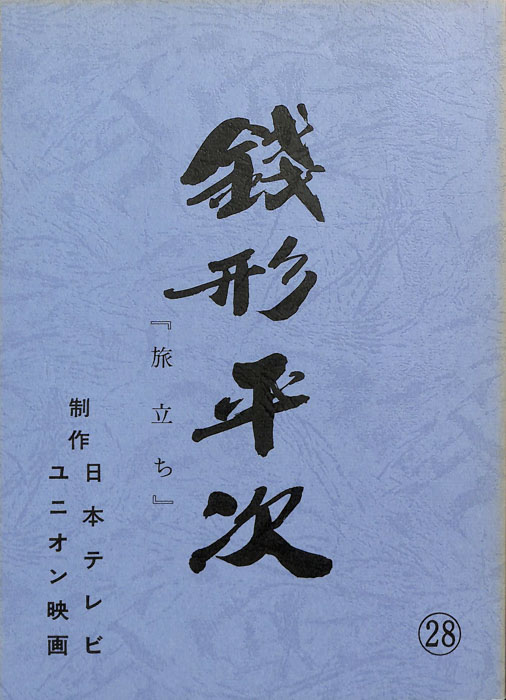 錢形平次
『旅立ち』
制作
日本テレビ
ユニオン映画
㉘